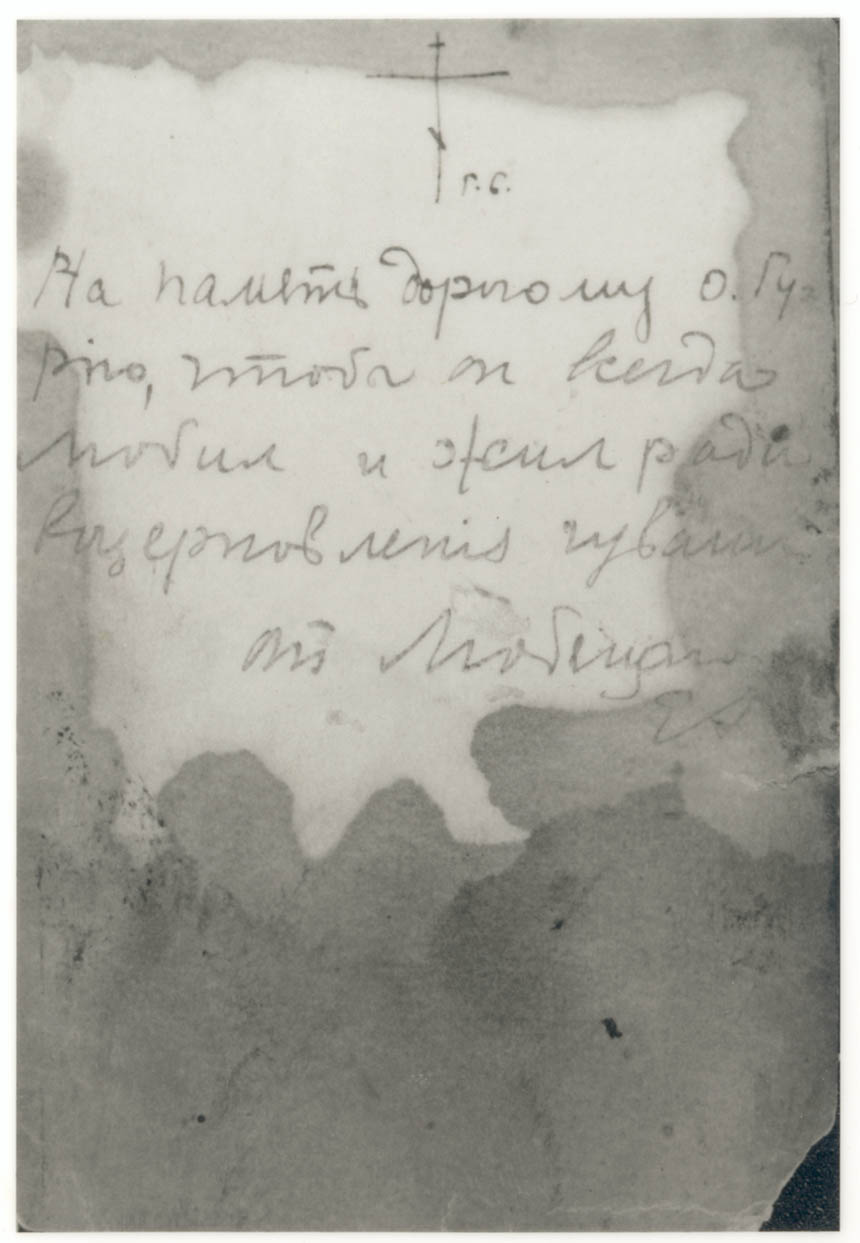 г. с.
На память дорогому о. Гу-
рию, чтобы он всегда
любил и жил ради
воцерковленія чуваш
отъ Любящаго